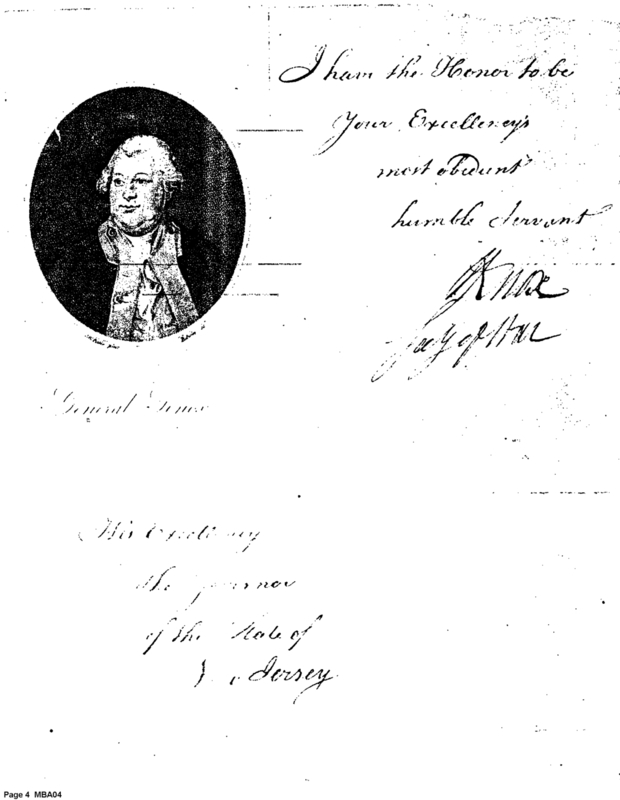 I have the Honor to be
Your Excellency's
most obedient
humble Servant
HKnox
Secy of War
General Knox
His Excellency
the Governor
of the State of
Jersey
Page 4 MBA04